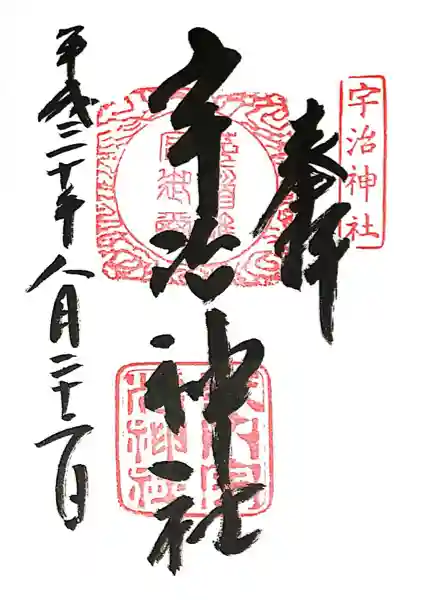 宇治神社
奉拝
宇治神社
平成三十年八月二十二日